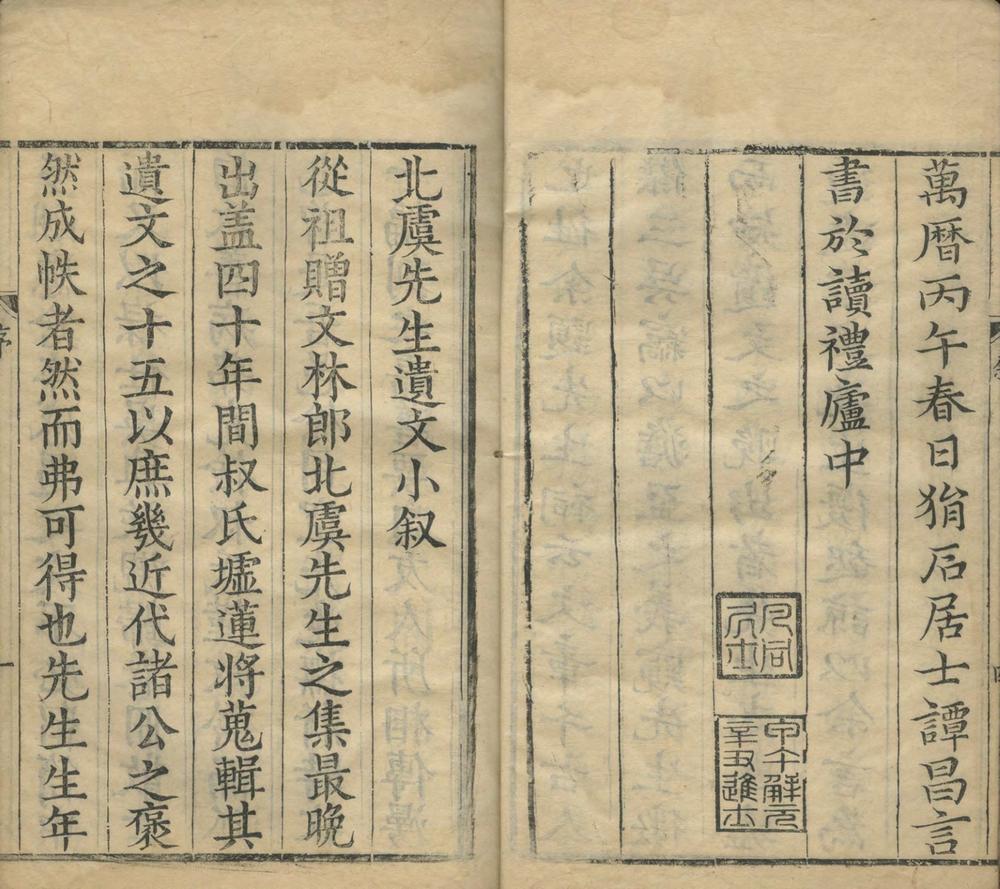 萬曆丙午春日狷石居士譚昌言
書於讀禮廬中
甲午解元
辛丑進士
北虞先生遺文小叙
從祖贈文林郎北虞先生之集最晚
出盖四十年間叔氏墟蓮將蒐輯其
遺文之十五以庶幾近代諸公之褒
然成帙者然而弗可得也先生生年
序
一